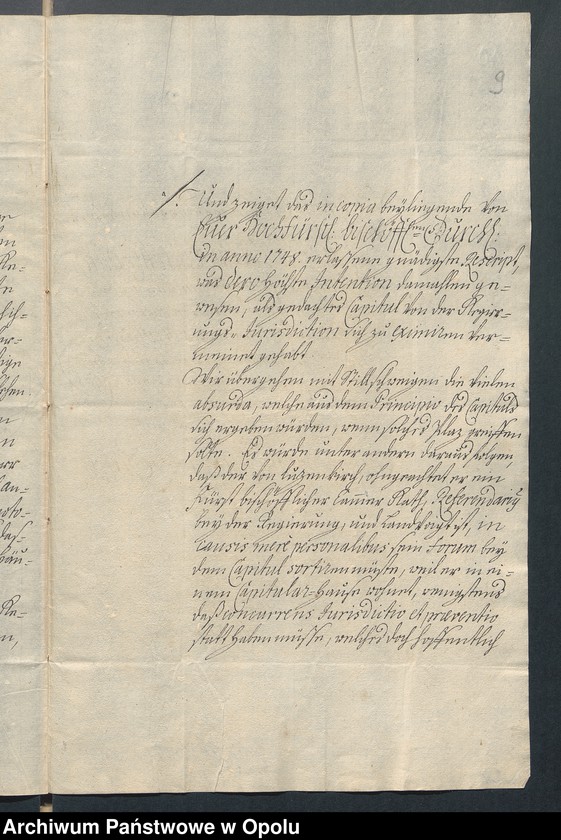 9
Und zeiget das in copia beyliegende von
Euer Hochfürstl. bischöffl. Durchl.
in anno 1748. erlassene gnädigste Rescript,
was Dero Höchste Intention damahlen ge-
wesen, als gedachtes Capitul von der Regier-
ungs-Jurisdiction sich zu eximiren ver-
meinet gehabt.
Wir übergehen mit Stillschweigen die vielen
absurda, welche aus dem Principio des Capituls
sich ergeben würden, wenn solches Plaz greiffen
solte. Es würde unter andern daraus folgen,
daß der von Luzenkirch, ohngeachtet er ein
Fürst bischöfflicher Cammer Rath, Referendarius
bey der Regierung, und Landvogt ist, in
causis mere personalibus sein Forum bey
dem Capitul sortiren müste, weil er in ei-
nem Capitular-Hause wohnet, wenigstens
daß concurrens Jurisdictio et praeventio
statt haben müsse, welches doch hoffentlich
Archiwum Państwowe w Opolu